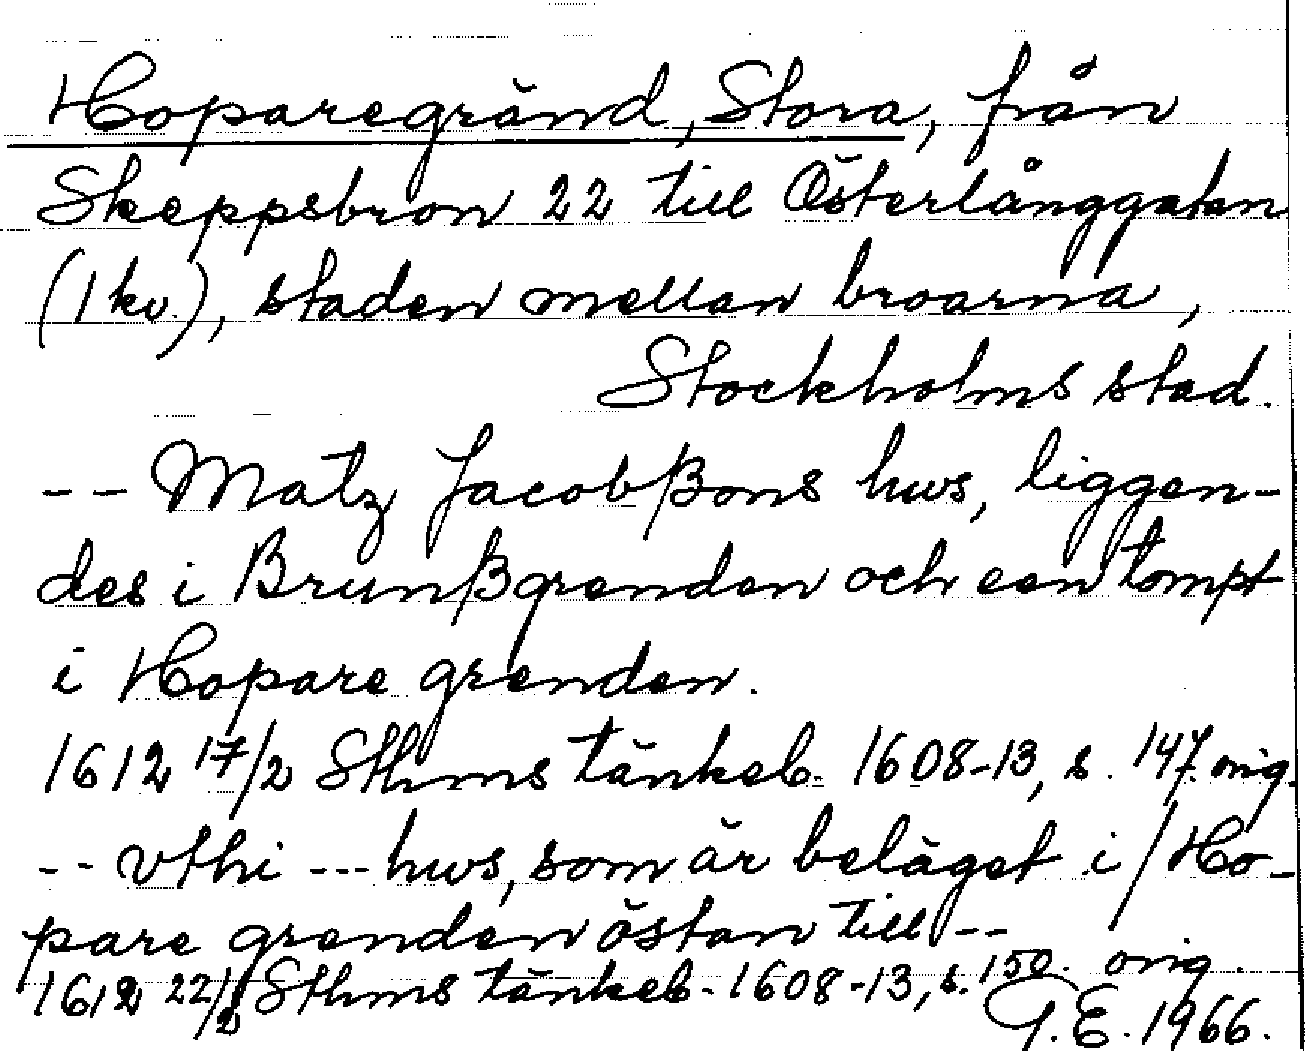 Hoparegränd, Stora, från
Skeppsbron 22 till Österlånggatan
(1 kv.), staden mellan broarna,
Stockholms stad.
-- Matz Jacobßons hws, liggen-
des i Brunßgrenden och een tompt
i Hopare grenden.
1612 17/2 Sthms tänkeb. 1608-13, s. 147. orig.
-- vthi --- hws, som är beläget i / Ho-
pare grenden östan till --
1612 22/2 Sthms tänkeb. 1608-13, s. 150. orig.
G.E. 1966.